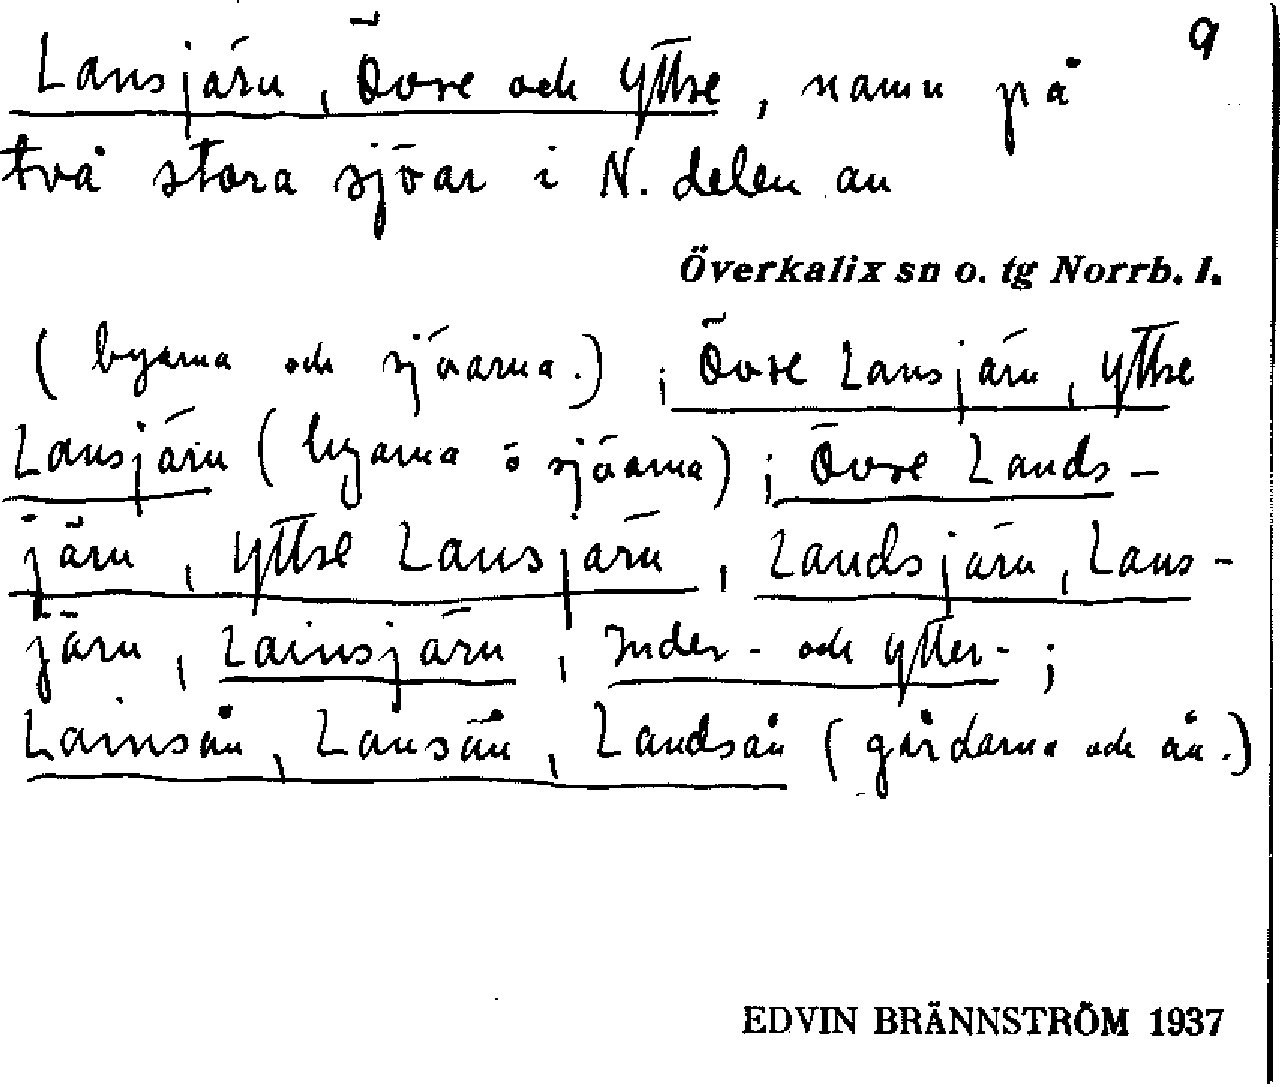 9
Lansjärv, Övre och Yttre, namn på
två stora sjöar i N. delen av
Överkalix sn o. tg Norrb. l.
(byarna och sjöarna.); Övre Lansjärv, Yttre
Lansjärv (byarna o sjöarna); Övre Lands-
järv, Yttre Lansjärv, Landsjärv, Lans-
järv, Lainsjärv, Inder- och Ytter-;
Lainsån, Lansån, Landsån (gårdarna och ån.)
EDVIN BRÄNNSTRÖM 1937